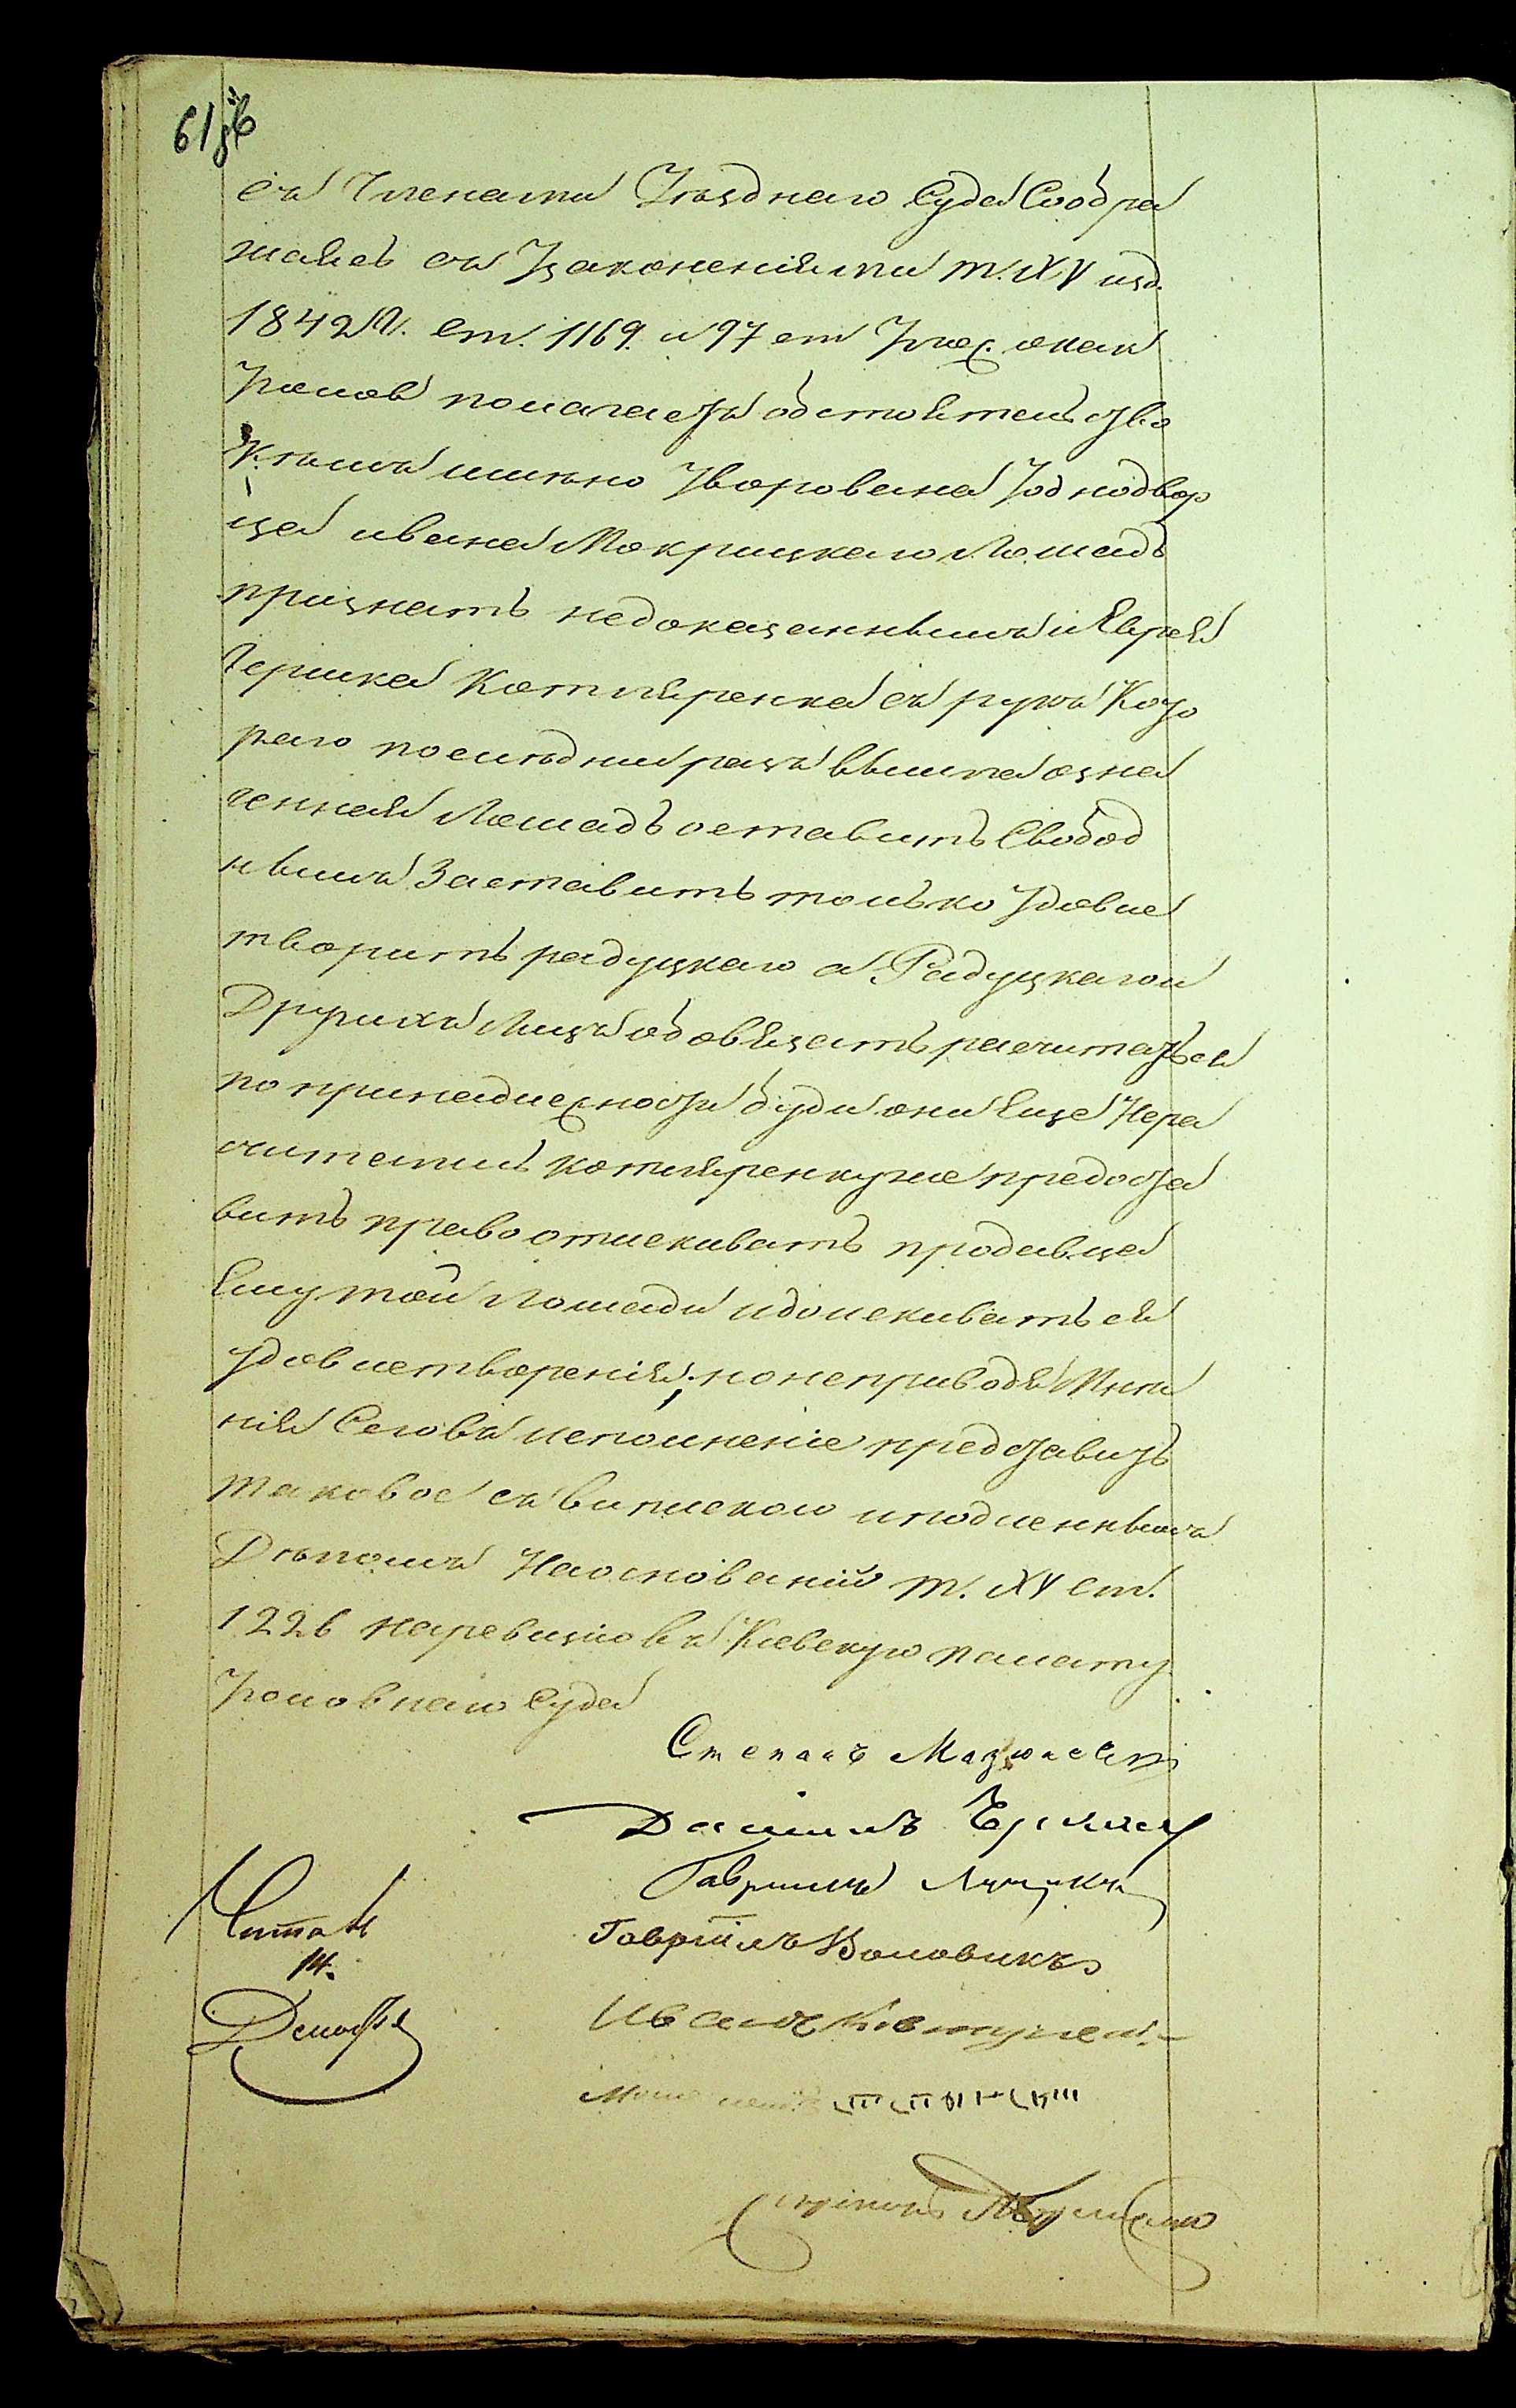 съ Членами Уезднаго Суда Собра
жаясь съ Узаконеніями т. XV изд.
1842 г. Ст. 1169. и 97 ст Улож. о нак
Уголов полагаетъ обстоятельство
Кѣмъ имянно Уворована Уоднодвор
ца ивана Мокрицкаго Лошадь
признать недоказаннымъ и Еврея
Гершка Котляренка съ рукъ Кото
раго послѣдни разъ вышла озна
ченная Лошадь оставить Свобод
нымъ Заставить только Удовле
творить радуцкаго а Радуцкагои
Другихъ Лицъ обовязать расчитаться
по принадлежности буди они Еще Нера
считались Котляренкуже предоста
вить право отискивать продавца
Ему той Лошади идоискиваться
удовлетворенія, но неприводя Мнѣ
нія Сего въ исполненіе представить
таковое съ випискою иподленнымъ
Дѣломъ Наоснованіи т. XV ст.
1226 наревизію въ Киевскую палату
Уголовнаго Суда
Степанъ
Даниилъ
Гавриилъ
Гавріилъ Воловикъ
Иванъ Ковтунен.
Читалъ
14.